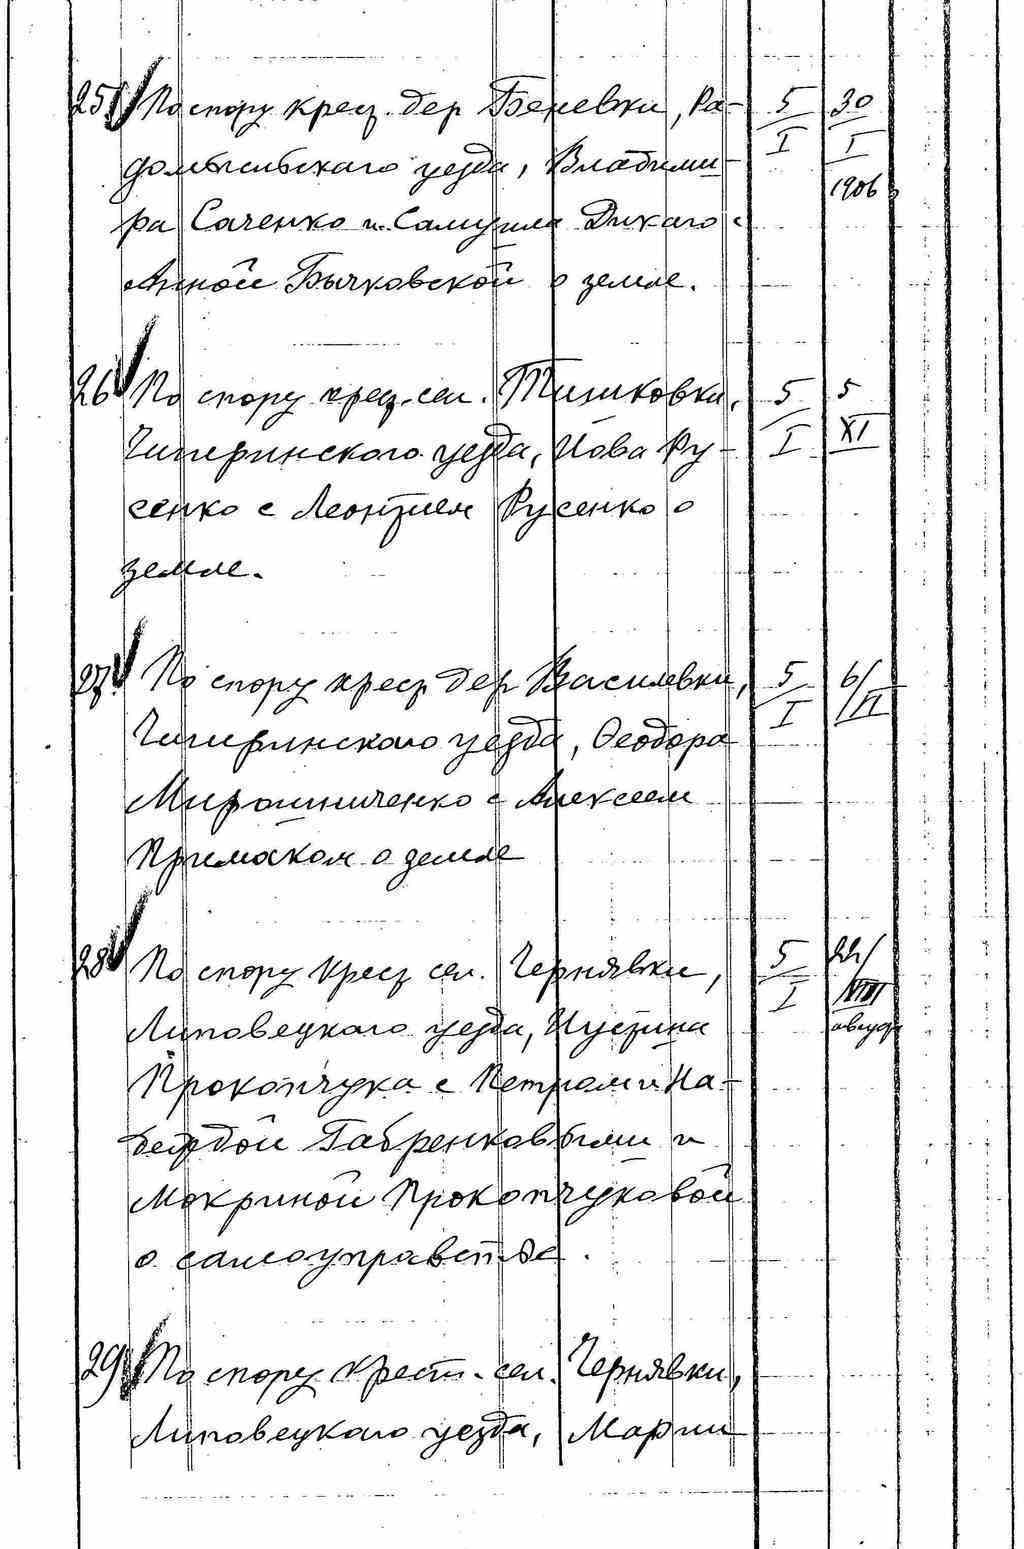 25 По спору крест. дер Беневки, Ра- 5/I 30/I
домысльскаго уезда, Владими- 1906
ра Саченко и Самуила Дикаго с
Анной Бычковской о земле.
26 По спору крест. сел. Тишковки, 5/I 5/XI
Чигеринского уезда, Иова Ру-
сенко с Леонтием Русенко о
земле.
27 По спору крест дер Василевки, 5/I 6/II
Чигеринскаго уезда, Феодора
Мирошниченко с Алексеем
Примаком о земле
28 По спору крест сел. Чернявки, 5/I 22/VIII
Липовецкаго уезда, Иустина август
Прокопчука с Петром и На-
Габренковыми и
Мокриной Прокопчуковой
о самоуправстве.
29 По спору крест. сел. Чернявки,
Липовецкаго уезда, Марии